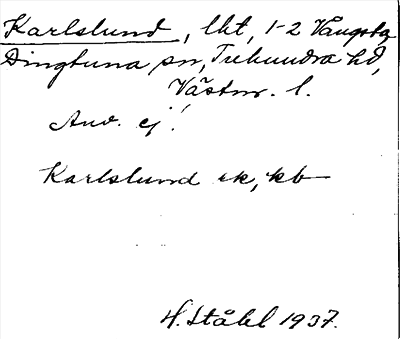 Karlslund, lht, 1-2 Vångsta
Dingtuna sn, Tuhundra hd,
Västm. l.
Anv. ej!
Karlslund ek, kb
H. Ståhl 1937.